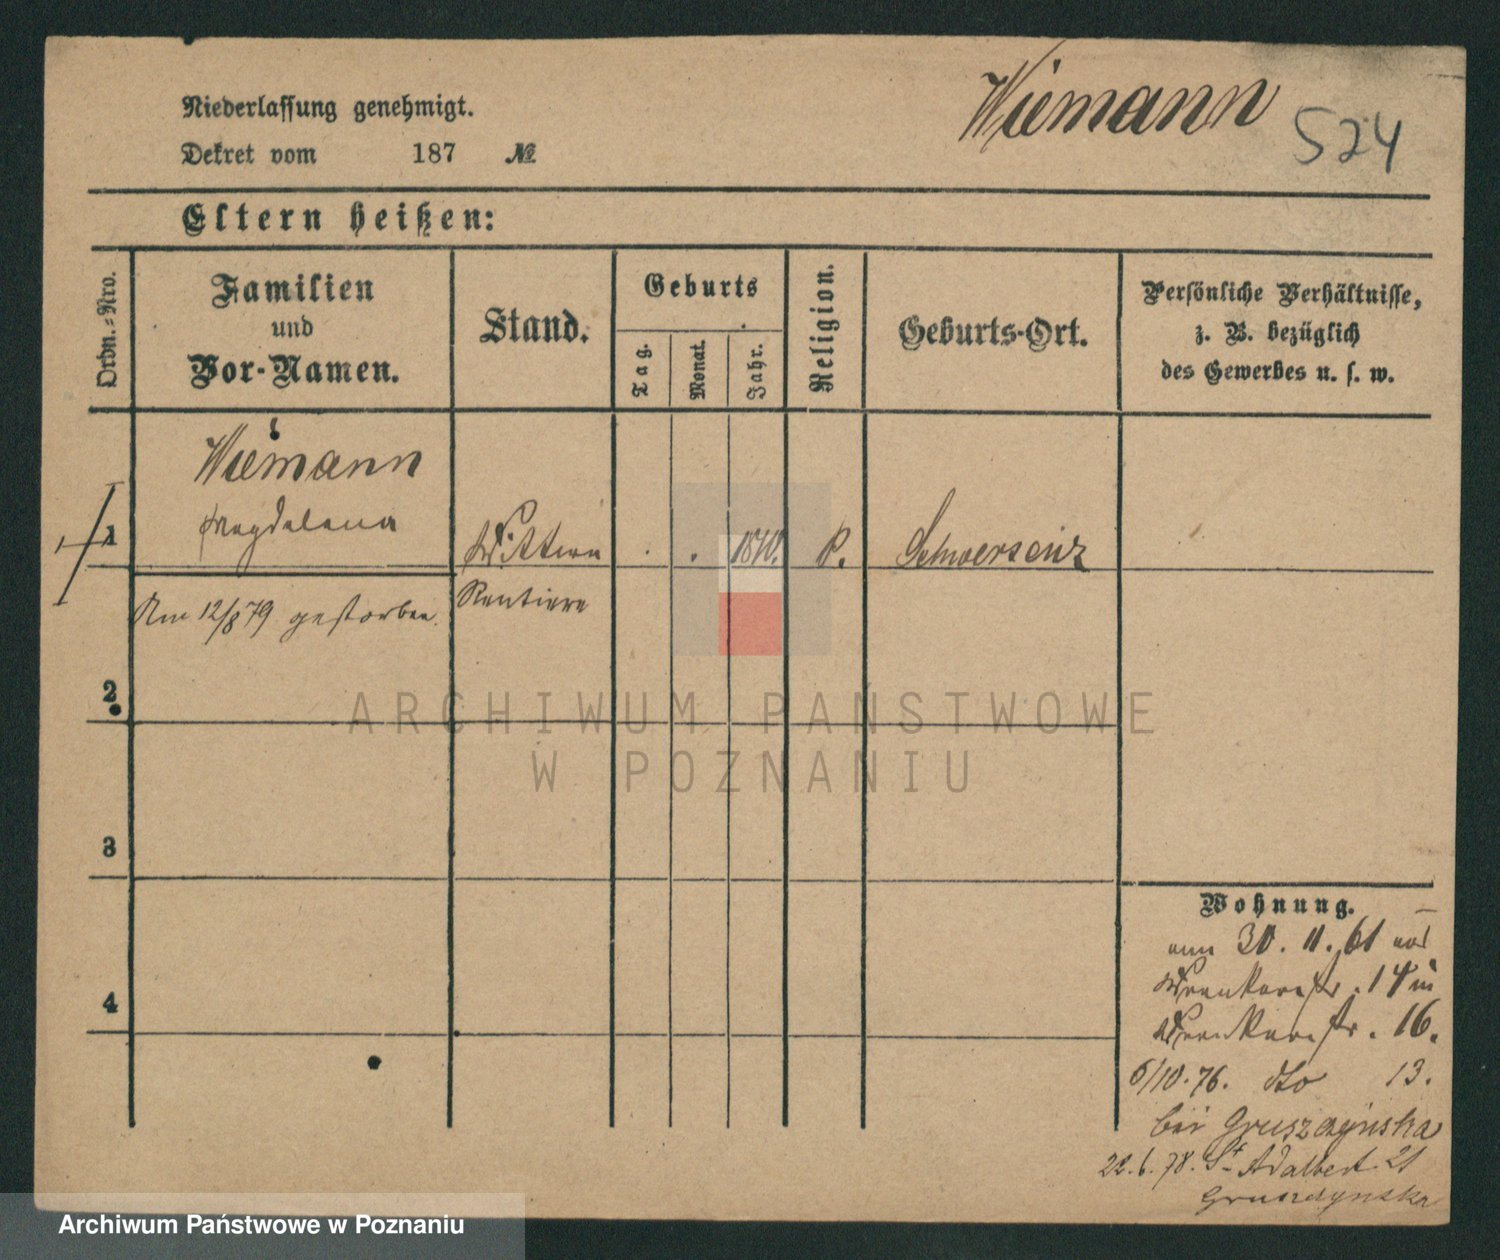 Wiemann 524
Niederlassung genehmigt.
Dekret vom 187 №
Eltern heißen:
Ordn.-Nro.
Familien
und
Vor-Namen.
Stand.
Geburts
Tag.
Monat.
Jahr.
Religion.
Geburts-Ort.
Persönliche Verhältnisse,
z. B. bezüglich
des Gewerbes u. s. w.
Wiemann
Magdalena
1 Wittwe . . 1810. k. Schwersenz
Rentiere
Am 12/8 79 gestorben.
2
3
4
ARCHIWUM PAŃSTWOWE
W POZNANIU
Wohnung.
30. 11. 61
Wronkerstr. 14 in
Wronkerstr. 16.
6/10. 76. dto 13.
bei Gruszczynska
22. 6. 78. St Adalbert 21
Gruszczynska
Archiwum Państwowe w Poznaniu